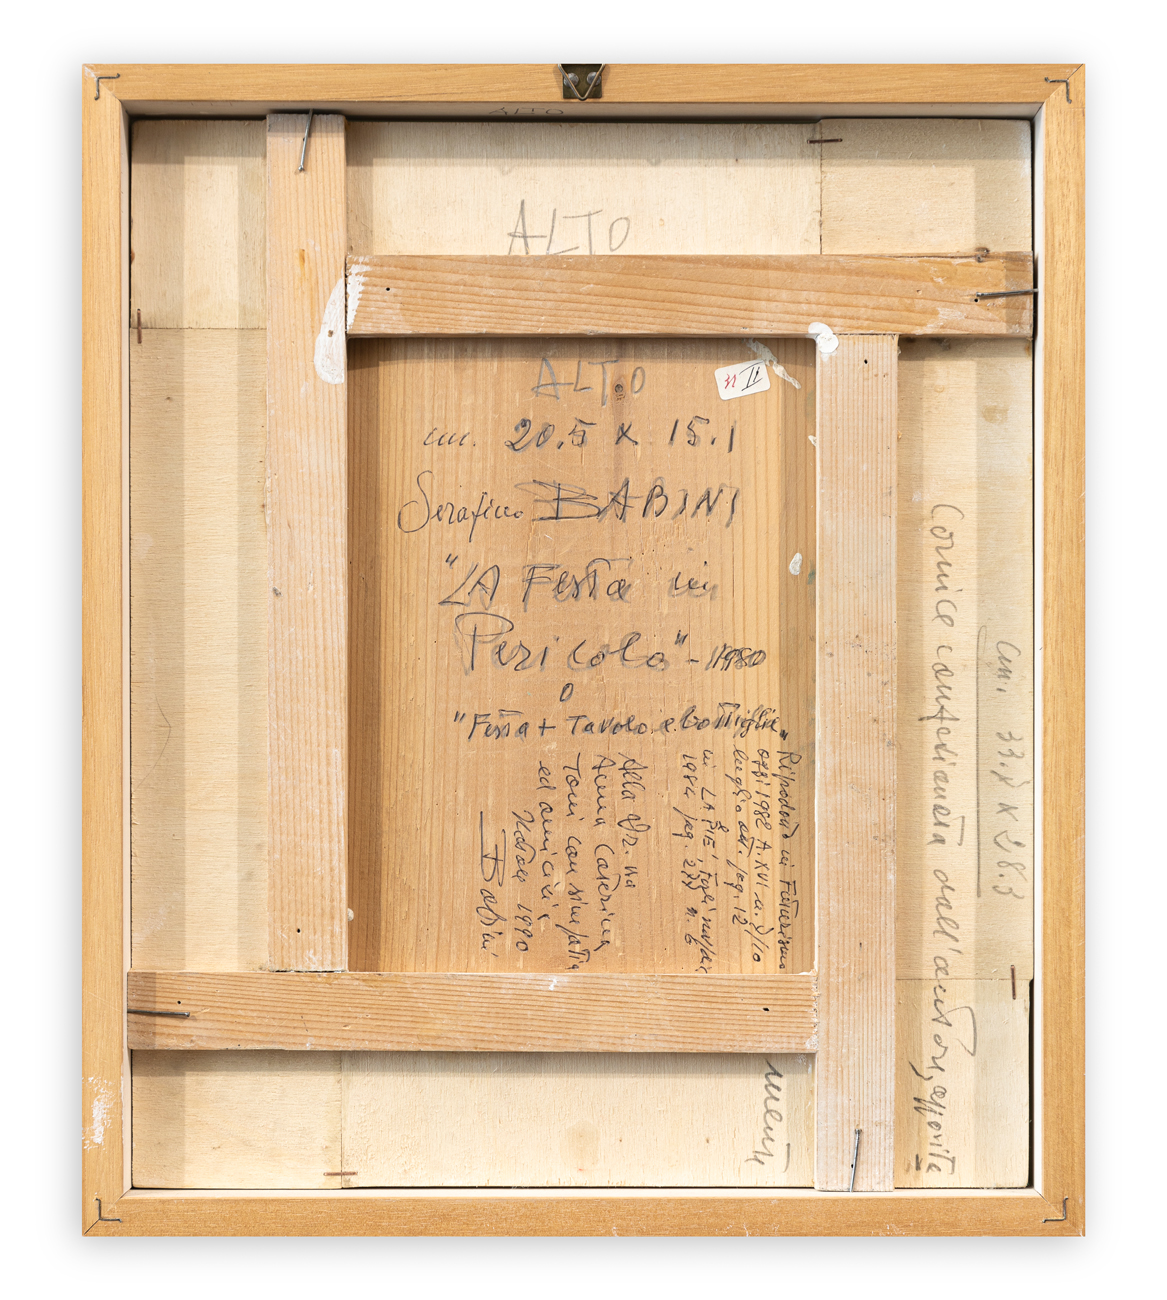 ALTO
ALTO
ALTO
II
cm. 20.5 x 15.1
Serafino BABINI
"LA Festa in
Pericolo" - 1980
o
"Festa + Tavolo e bottiglie"
Riprodotto in Futurismo
oggi 1982 A. XVI n. 9/10
luglio ott. pag. 12
in LA PIÊ,
1984 pag. 277 n. 6
Alla Dr. ssa
Anna Caterina
Toni con simpatia
ed amicizia
1990
Babini
cm. 33.7 x 28.3
Cornice confezionata dall'autore, apposita
mente